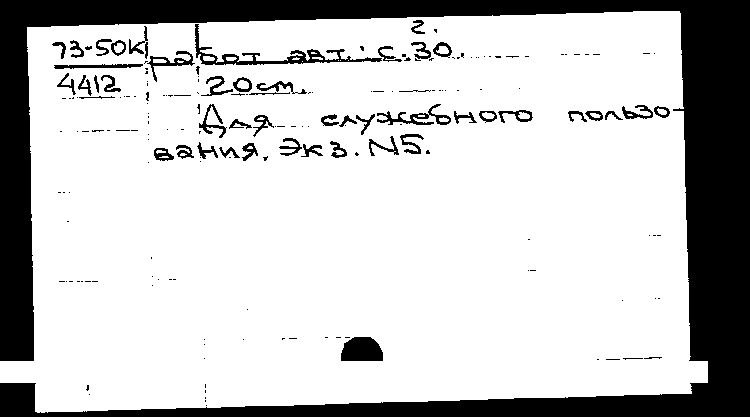 2.
73-50К работ авт.: с.30.
4412 20см.
Для служебного пользо-
вания. Экз. N5.